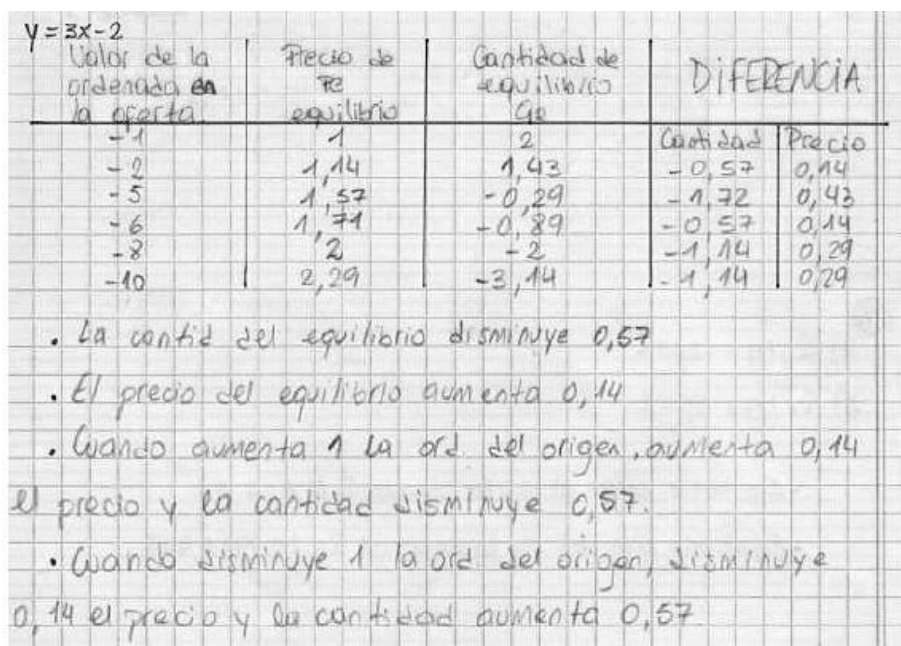 y = 3x-2
Valor de la ordenada en la oferta | Precio de Pe equilibrio | Cantidad de equilibrio Qe | DIFERENCIA
Cantidad | Precio
-1 | 1 | 2
-2 | 1,14 | 1,43 | -0,57 | 0,14
-5 | 1,57 | -0,29 | -1,72 | 0,43
-6 | 1,71 | -0,89 | -0,57 | 0,14
-8 | 2 | -2 | -1,14 | 0,29
-10 | 2,29 | -3,14 | -1,14 | 0,29
. La cantid del equilibrio disminuye 0,57
. El precio del equilibrio aumenta 0,14
. Cuando aumenta 1 la ord. del origen, aumenta 0,14
el precio y la cantidad disminuye 0,57.
. Cuando disminuye 1 la ord. del origen, disminuye
0,14 el precio y la cantidad aumenta 0,57